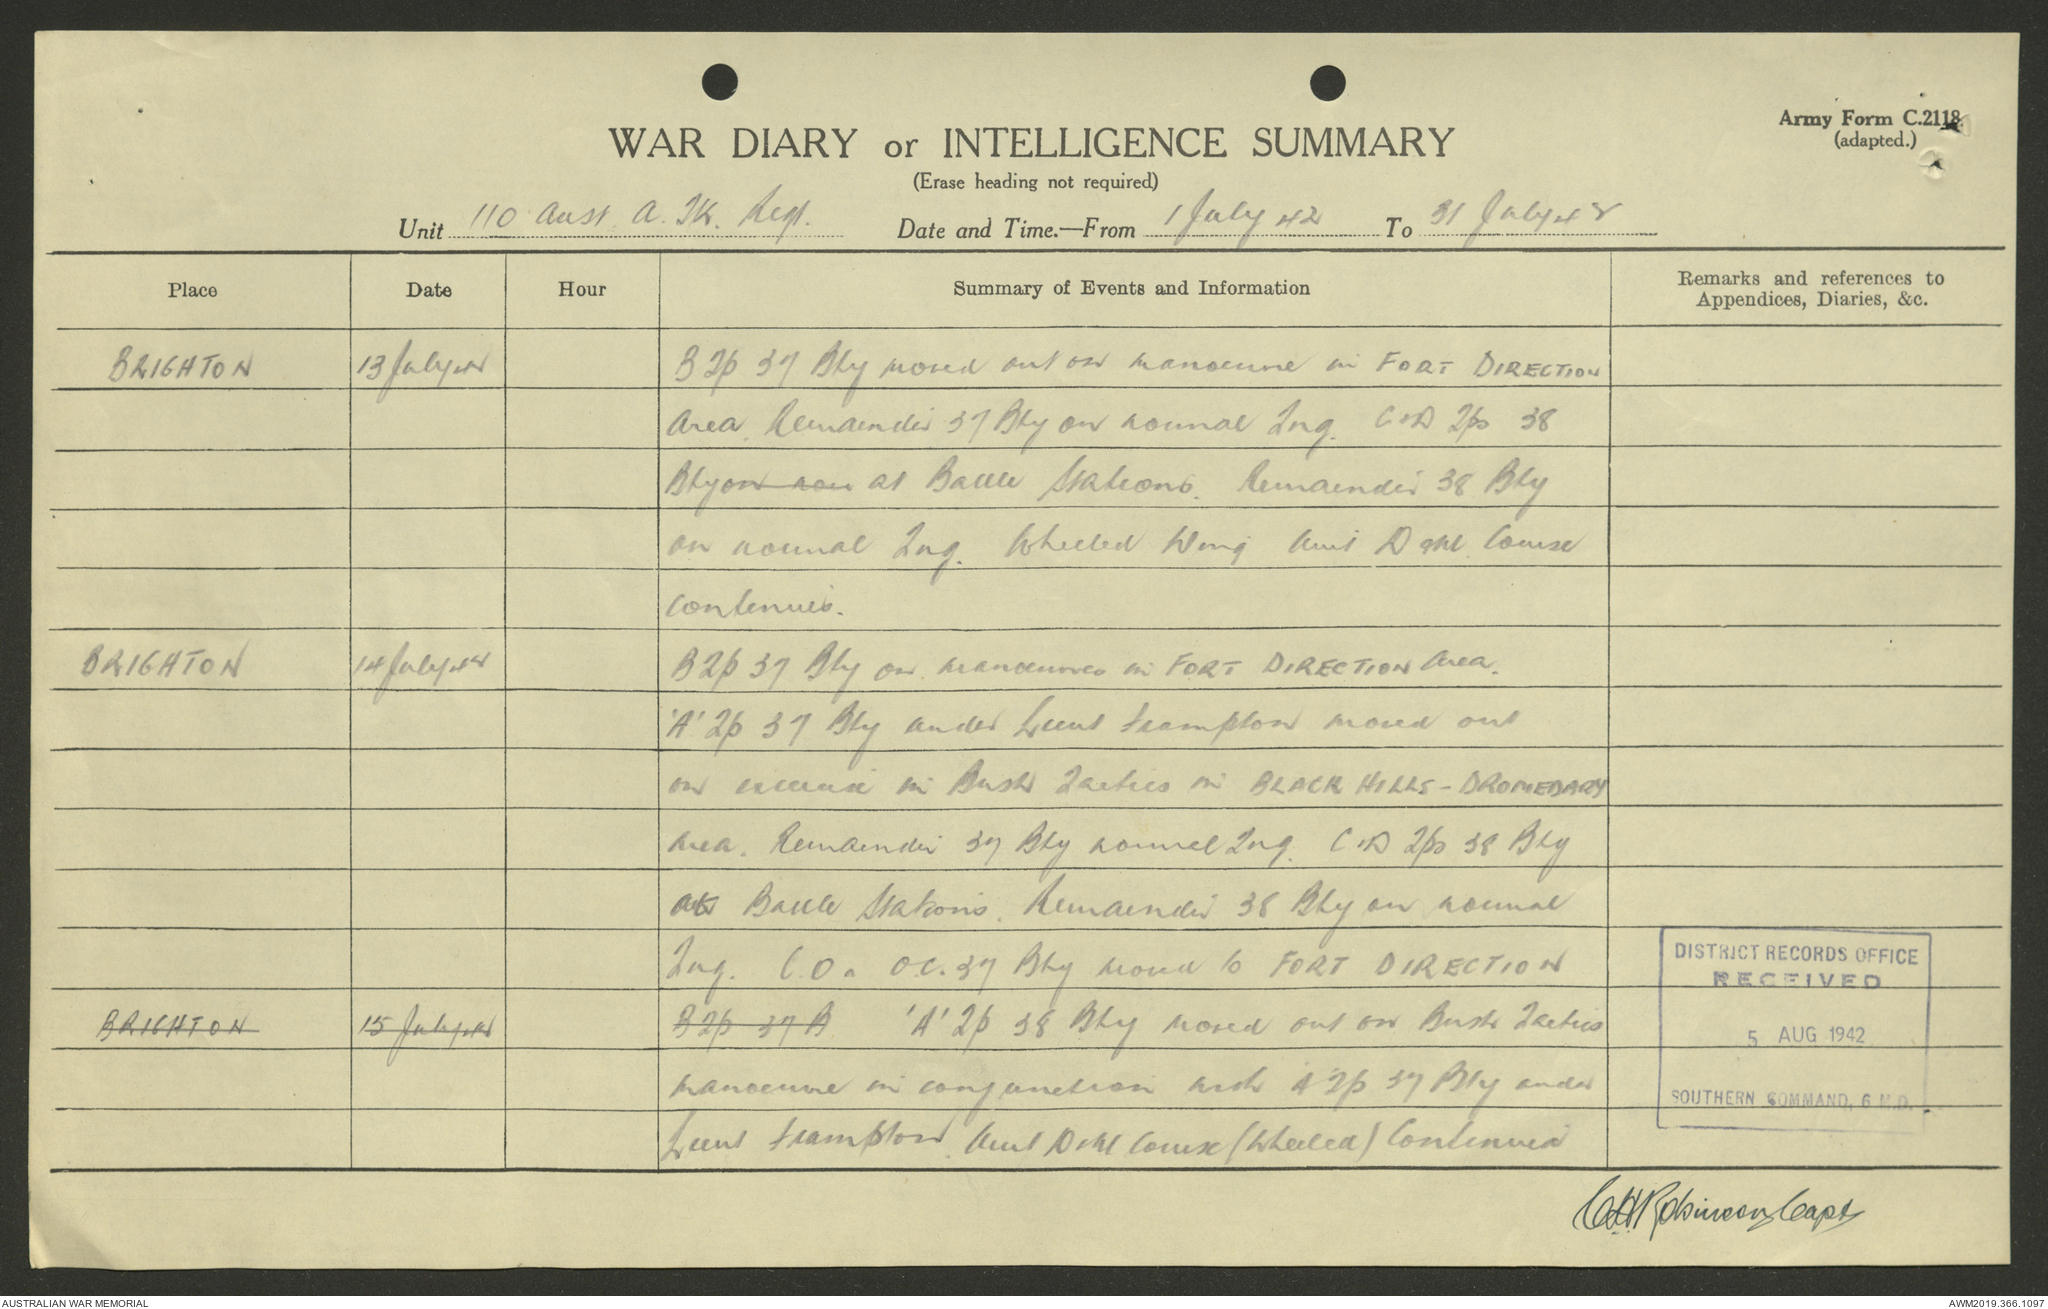 Army Form C.2118
(adapted.)
WAR DIARY or INTELLIGENCE SUMMARY
(Erase heading not required)
Unit 110 Aust. A. TK. Regt. Date and Time.—From 1 July 42 To 31 July 42
Place Date Hour Summary of Events and Information Remarks and references to Appendices, Diaries, &c.
BRIGHTON 13 July 42 B Tp 37 Bty moved out on manoeuvre in FORT DIRECTION
Area. Remainder 37 Bty on normal Tng. C & D Tps 38
Bty on nor at Battle Stations. Remainder 38 Bty
on normal Tng. Wheeled Wing Unit D & M Course
continues.
BRIGHTON 14 July 42 B Tp 37 Bty on manoeuvres in FORT DIRECTION Area.
'A' Tp 37 Bty under Lieut Frampton moved out
on exercise in Bush Tactics in BLACK HILLS - DROMEDARY
Area. Remainder 37 Bty normal Tng. C & D Tps 38 Bty
at Battle Stations. Remainder 38 Bty on normal
Tng. C.O. & O.C. 37 Bty moved to FORT DIRECTION
BRIGHTON 15 July 42 B Tp 37 B 'A' Tp 38 Bty moved out on Bush Tactics
manoeuvre in conjunction with 'A' Tp 37 Bty under
Lieut Frampton. Unit D & M Course (Wheeled) Continued
DISTRICT RECORDS OFFICE
RECEIVED
5 AUG 1942
SOUTHERN COMMAND, 6 M.D.
CH Robinson Capt
AUSTRALIAN WAR MEMORIAL AWM2019.366.1097